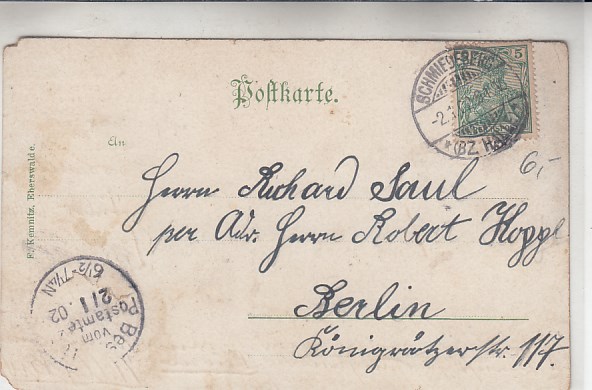 Postkarte.
SCHMIEDEBERG
5
-2.1.
*(BZ HA
An
6,-
Herrn Richard Saul
per Adr. Herrn Robert Hoppe
Berlin
Königrätzerstr. 117.
F. Kemnitz, Eberswalde.
Bes
vom
Postamte
2/1.02
6½-7¼N